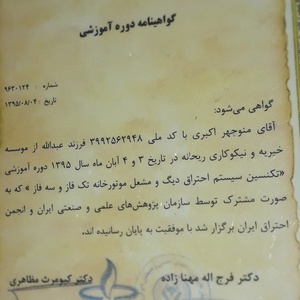 گواهینامه دوره آموزشی
شماره : ۹۶۳۰۱۲۴
تاریخ : ۱۳۹۵/۰۸/۰۴
گواهی می‌شود:
آقای منوچهر اکبری با کد ملی ۳۹۹۲۵۶۲۹۴۸ فرزند عبدالله از موسسه
خیریه و نیکوکاری ریحانه در تاریخ ۳ و ۴ آبان ماه سال ۱۳۹۵ دوره آموزشی
«تکنسین سیستم احتراق دیگ و مشعل موتورخانه تک فاز و سه فاز» که به
صورت مشترک توسط سازمان پژوهش‌های علمی و صنعتی ایران و انجمن
احتراق ایران برگزار شد با موفقیت به پایان رسانیده اند.
دکتر فرج اله مهنا زاده
دکتر کیومرث مظاهری